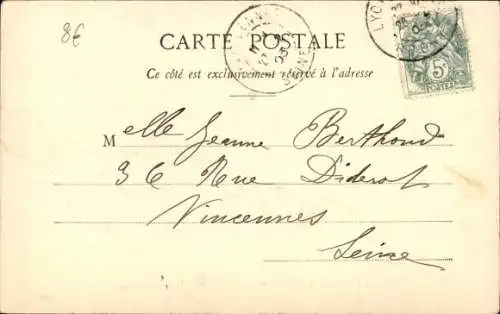 8€
CARTE POSTALE
Ce côté est exclusivement réservé à l'adresse
Melle Jeanne Berthoud
36 Rue Diderot
Vincennes
Seine
5c
POSTES
LYON
SEINE
03